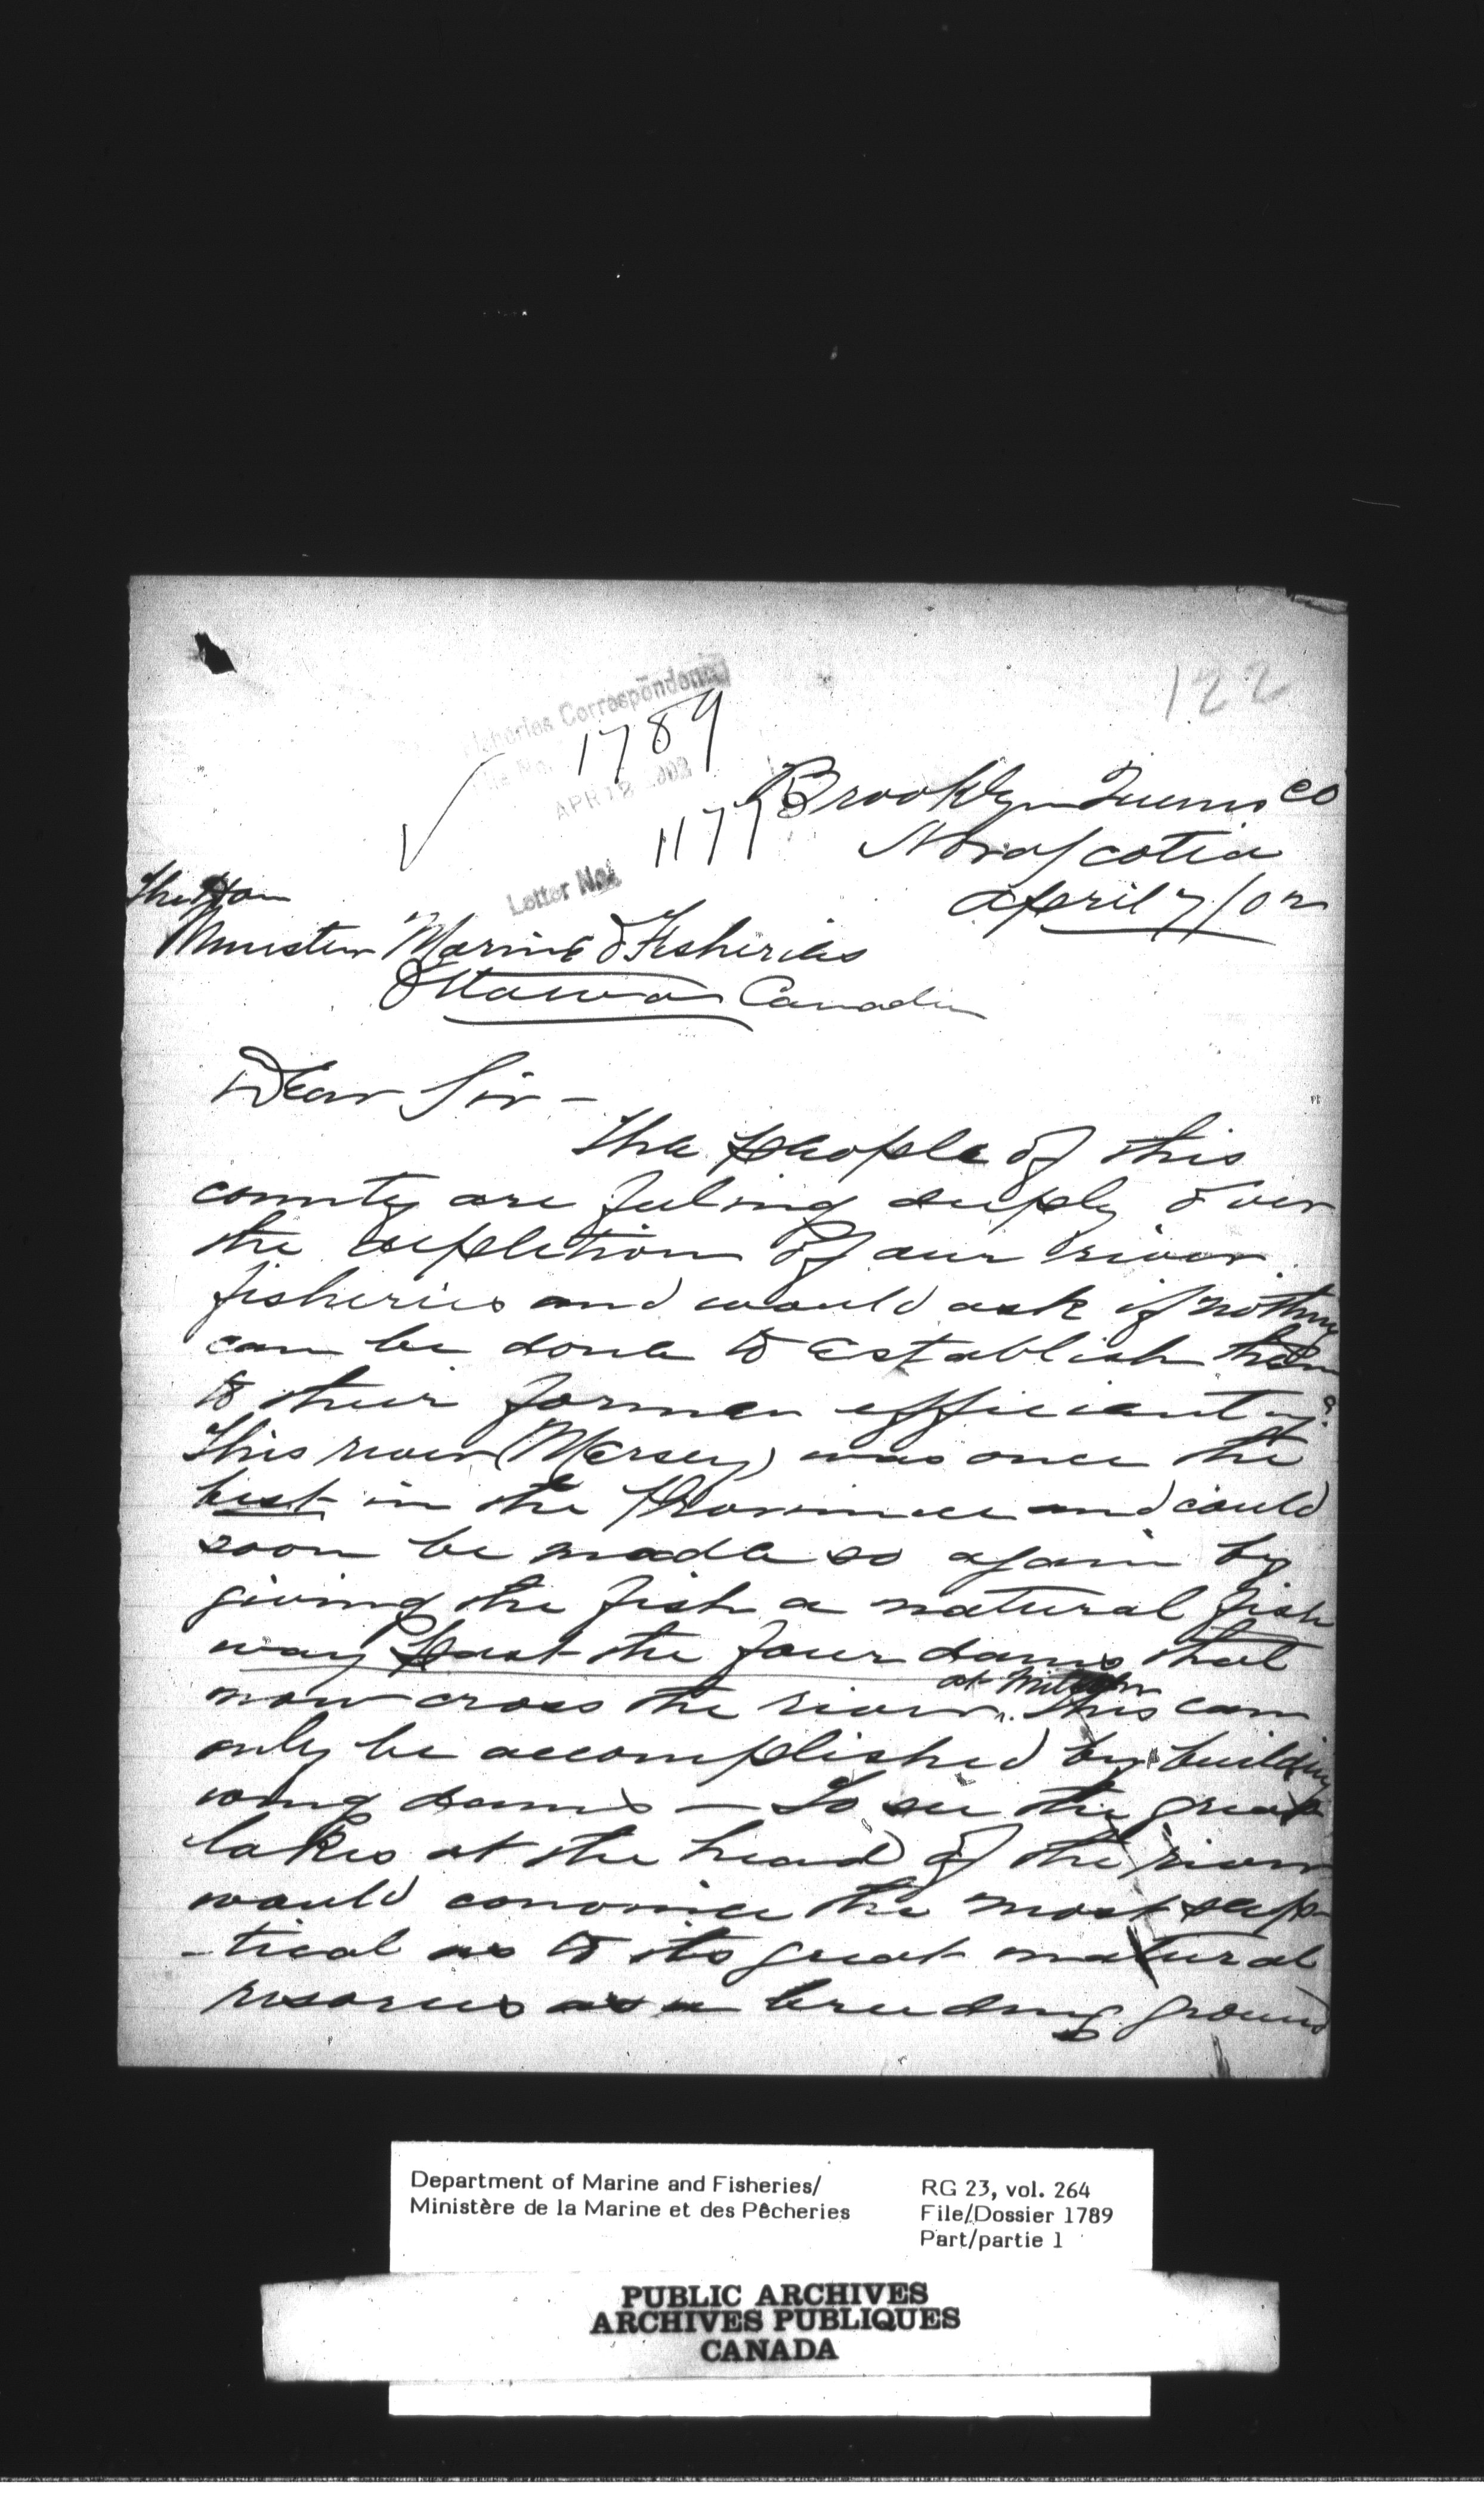 122
Fisheries Correspondence
File No. 1789
APR 12 1902
Letter No. 11773
Brooklyn Queens Co
Nova Scotia
April 7/02
The Hon
Minister Marine & Fisheries
Ottawa Canada
Dear Sir -
The people of this
county are feeling deeply over
the depletion of our river
fisheries and would ask if nothing
can be done to establish them
to their former efficiency?
This river (Mersey) was once the
best in the Province and could
soon be made so again by
giving the fish a natural fish
way past the four dams that
now cross the river at Milton. This can
only be accomplished by building
wing dams — To see the great
lakes at the head of the river
would convince the most scep
-tical as to its great natural
resources as a breeding ground
Department of Marine and Fisheries/
Ministère de la Marine et des Pêcheries
RG 23, vol. 264
File/Dossier 1789
Part/partie 1
PUBLIC ARCHIVES
ARCHIVES PUBLIQUES
CANADA